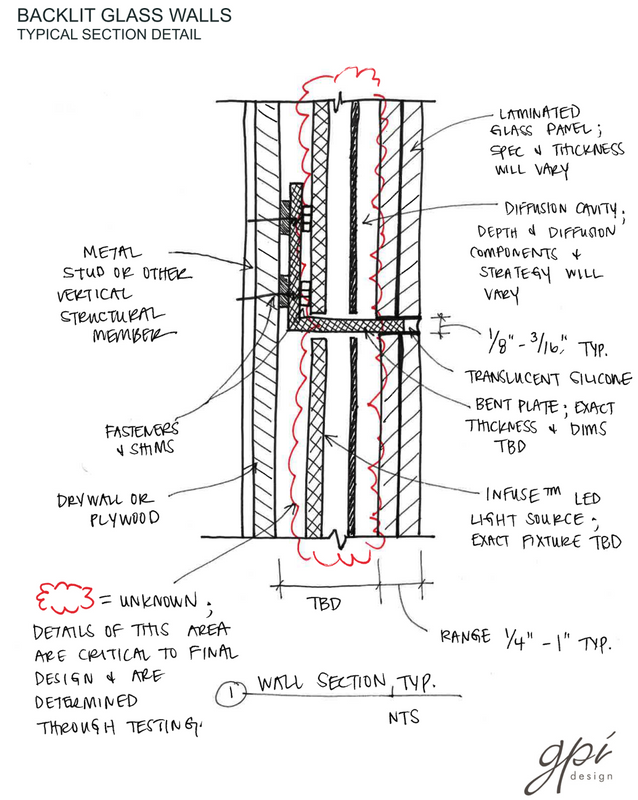 BACKLIT GLASS WALLS
TYPICAL SECTION DETAIL
LAMINATED
GLASS PANEL;
SPEC & THICKNESS
WILL VARY
DIFFUSION CAVITY;
DEPTH & DIFFUSION
COMPONENTS &
STRATEGY WILL
VARY
METAL
STUD OR OTHER
VERTICAL
STRUCTURAL
MEMBER
1/8" - 3/16" TYP.
TRANSLUCENT SILICONE
BENT PLATE; EXACT
THICKNESS & DIMS
TBD
FASTENERS
& SHIMS
DRYWALL OR
PLYWOOD
INFUSE™ LED
LIGHT SOURCE;
EXACT FIXTURE TBD
TBD
RANGE 1/4" - 1" TYP.
= UNKNOWN;
DETAILS OF THIS AREA
ARE CRITICAL TO FINAL
DESIGN & ARE
DETERMINED
THROUGH TESTING.
1 WALL SECTION, TYP.
NTS
gpi
design